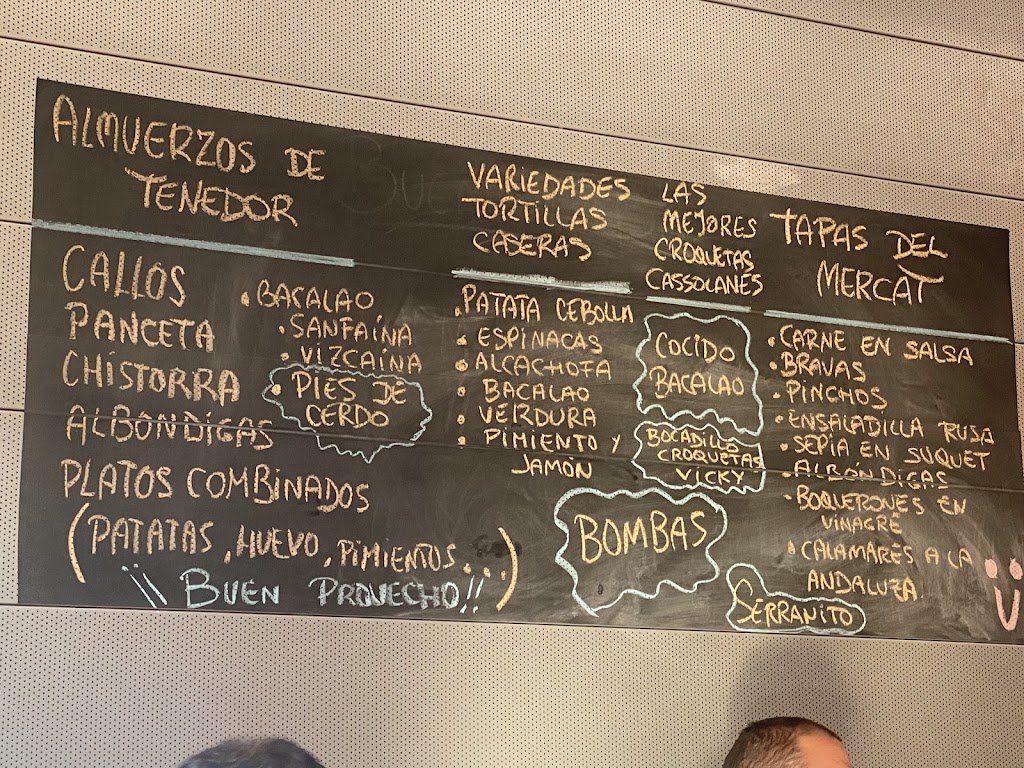 ALMUERZOS DE
TENEDOR
CALLOS
PANCETA
CHISTORRA
ALBONDIGAS
PLATOS COMBINADOS
(PATATAS, HUEVO, PIMIENTOS...)
¡¡ BUEN PROVECHO!!
• BACALAO
• SANFAÍNA
• VIZCAÍNA
• PIES DE
CERDO
VARIEDADES
TORTILLAS
CASERAS
• PATATA CEBOLLA
• ESPINACAS
• ALCACHOFA
• BACALAO
• VERDURA
• PIMIENTO Y
JAMÓN
LAS
MEJORES
CROQUETAS
CASSOLANES
COCIDO
BACALAO
BOCADILLO
CROQUETAS
VICKY
BOMBAS
TAPAS DEL
MERCAT
• CARNE EN SALSA
• BRAVAS
• PINCHOS
• ENSALADILLA RUSA
• SEPIA EN SUQUET
• ALBÓNDIGAS
• BOQUERONES EN
VINAGRE
• CALAMARES A LA
ANDALUZA.
SERRANITO